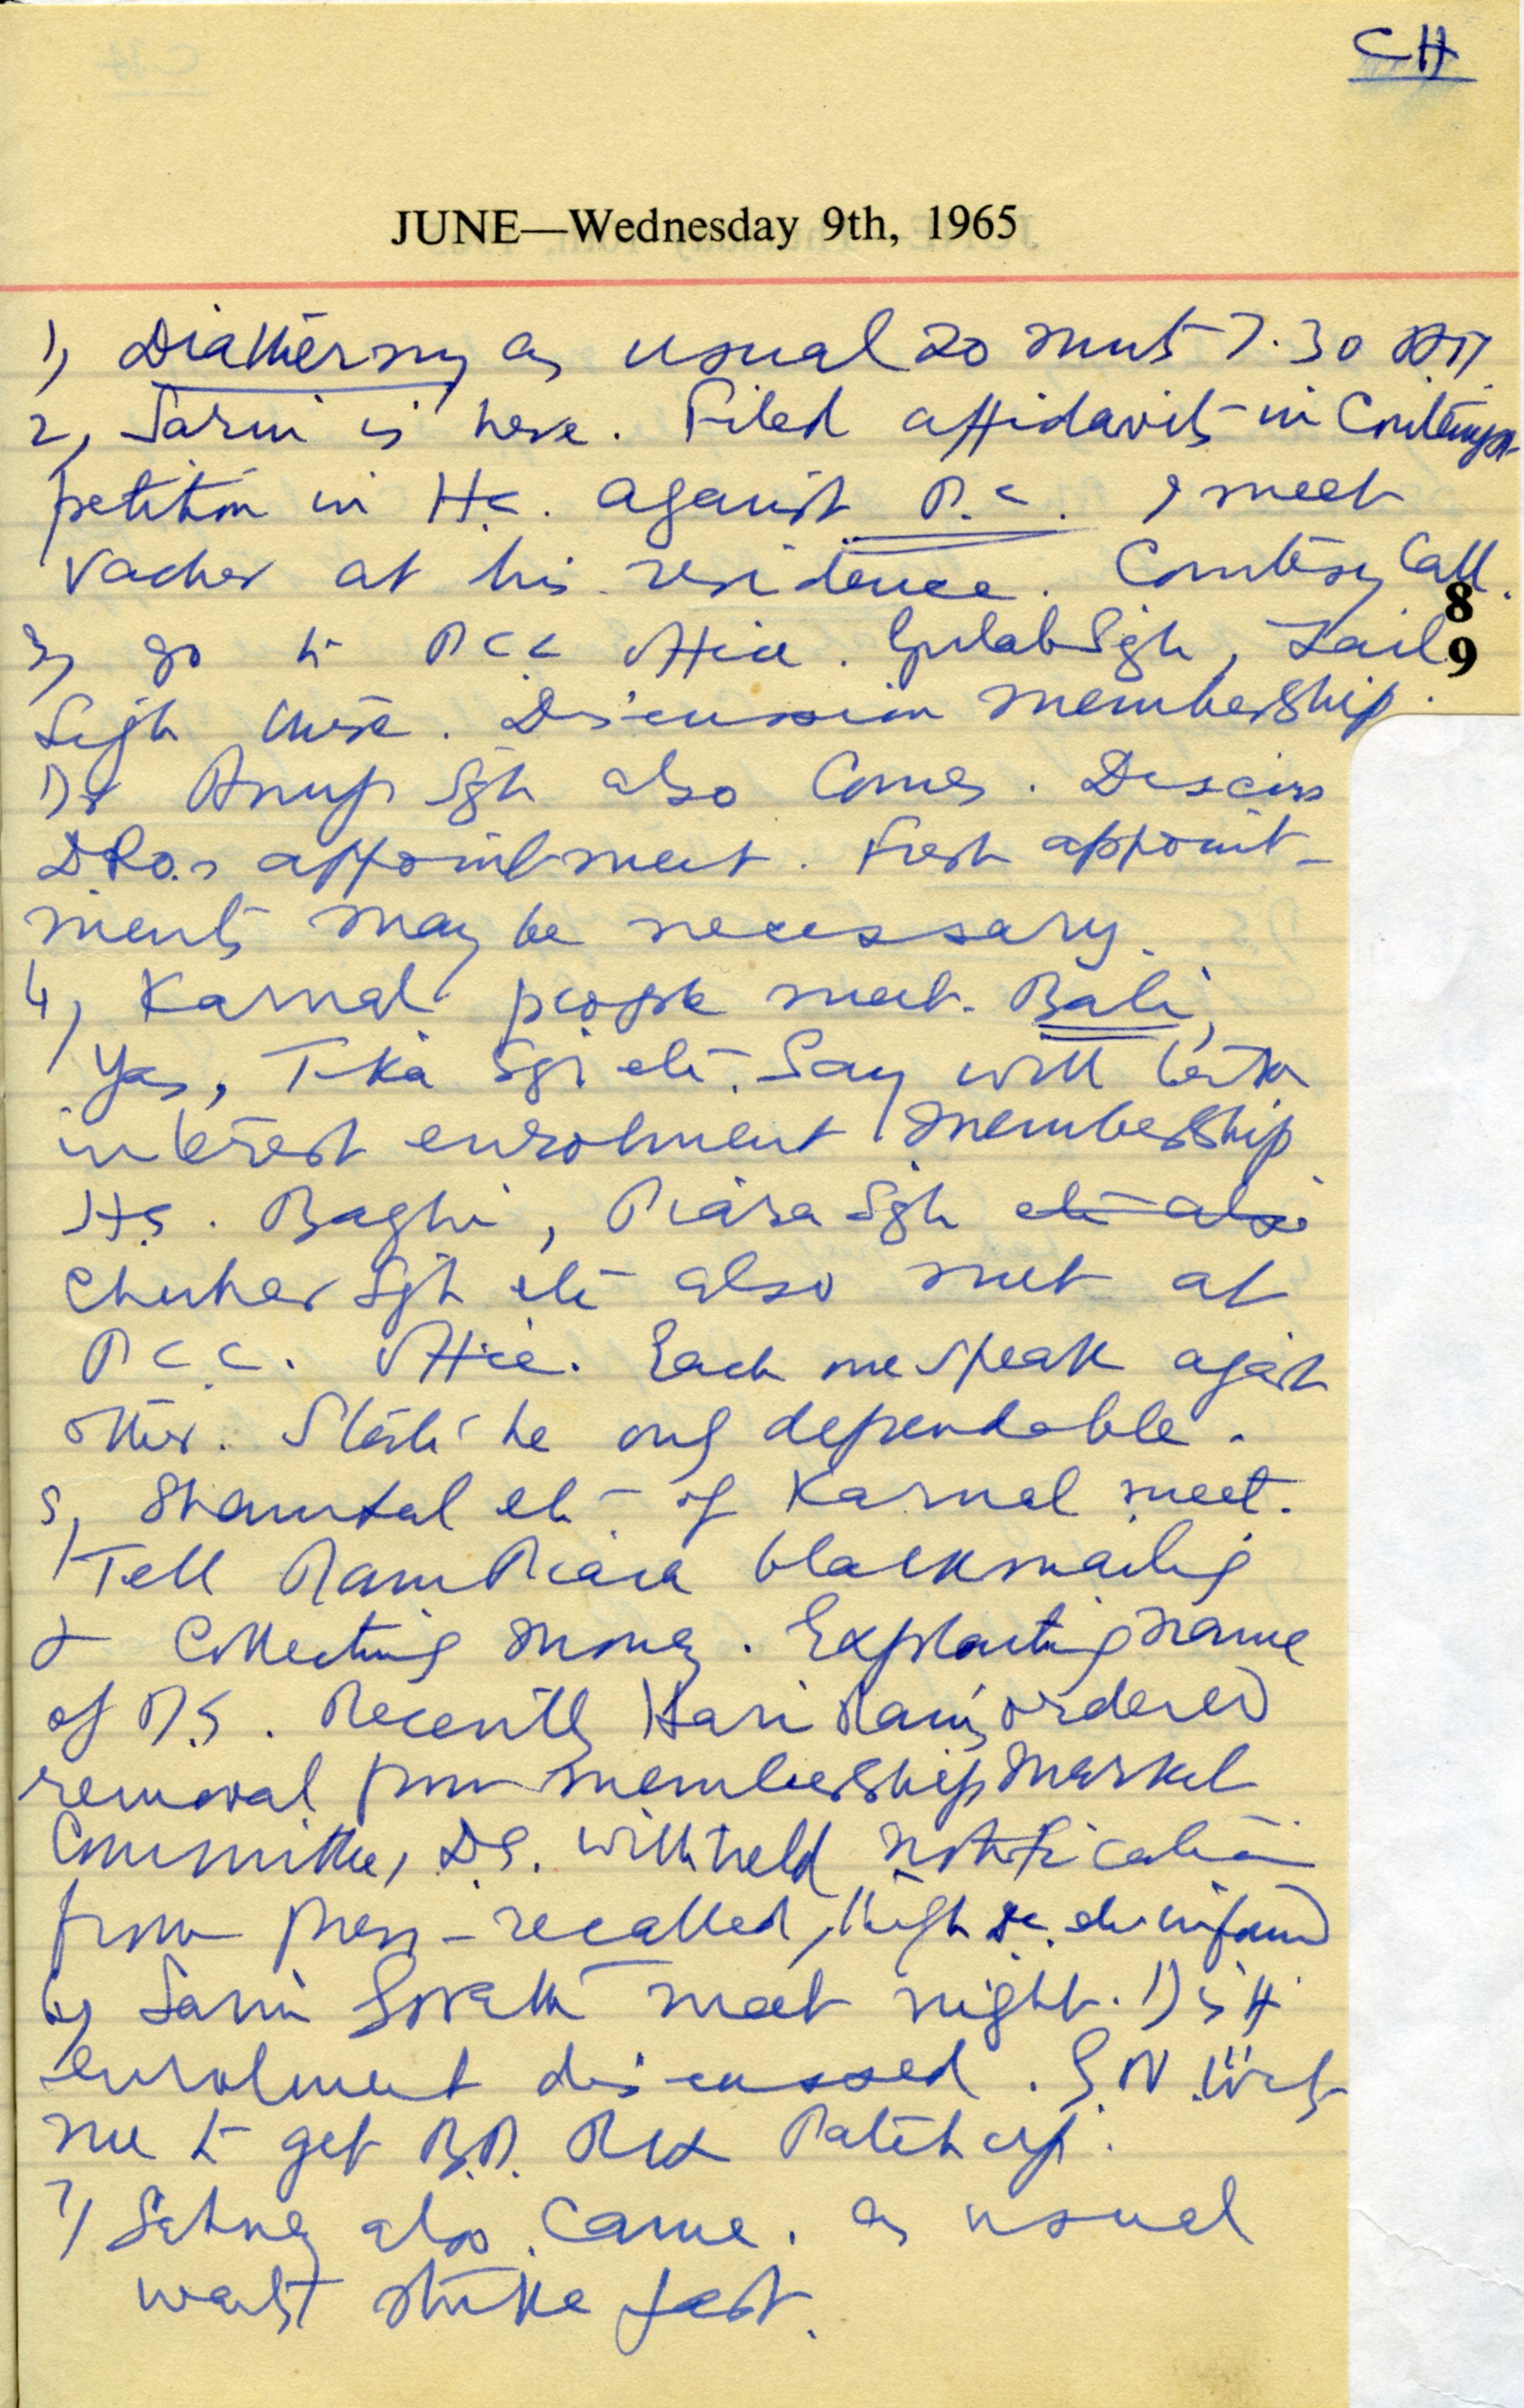 CH
JUNE—Wednesday 9th, 1965
1) Diathermy as usual 20 mnts 7.30 AM
2, Sarin is here. Filed affidavits in Contempt
petition in H.C. against P.C. I meet
Vacher at his residence. Courtesy Call.
8
3) go to PCC Office. Gulab Sgh, Zail
9
Sigh there. Discussion membership.
Dr Anup Sgh also Comes. Discuss
DROs appointment. Fresh appoint-
ments may be necessary.
4) Karnal people meet. Bali,
Yas, Tika Sgr etc. Say will take
interest enrolment membership
H.S. Baghi, Piara Sgh etc also
Chuher Sgh etc also met at
P.C.C. Office. Each one speak agast
other. State he only dependable.
5, Sham Lal etc of Karnal meet.
Tell Ram Piara blackmailig
& Collecting money. Exploiting name
of D.S. Recently Hari Ram's ordered
removal from membership Market
Committee, D.S. withheld notification
from press - recalled,
6) Sarin meet night. Distt
enrolment discussed. S.N.
me to get B.D. Patch up.
7) also came. as usual
wants strike fast.